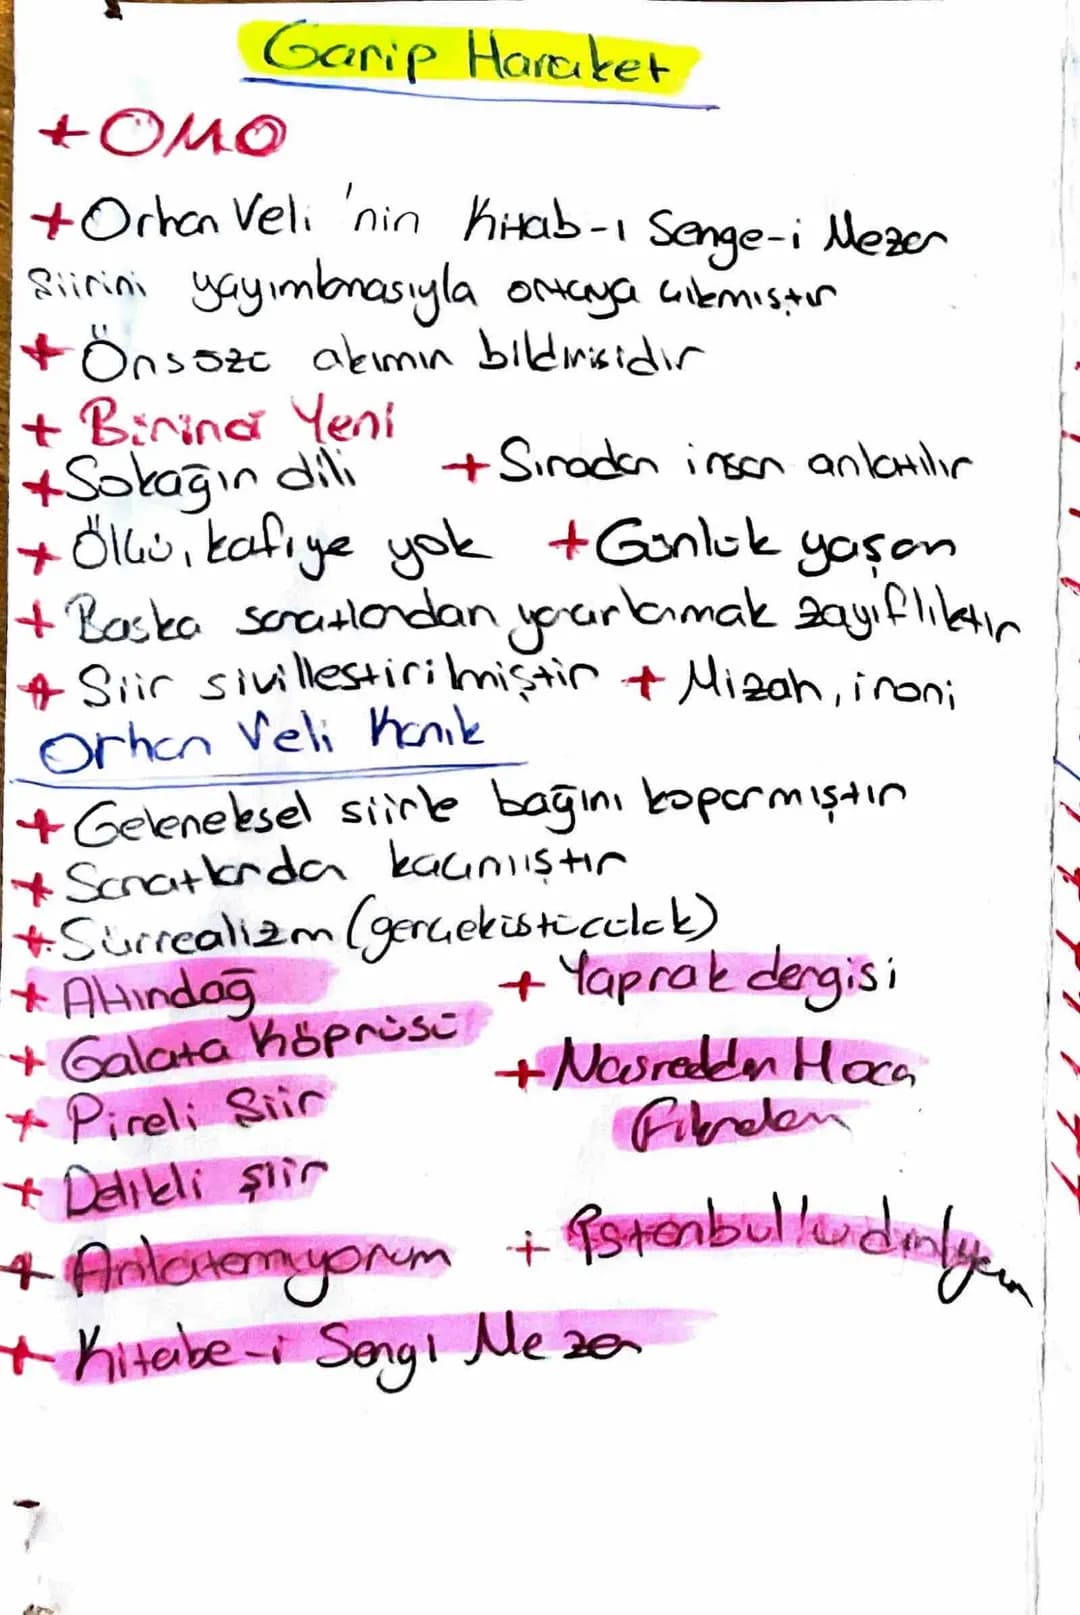 Garip Haraket
+ OMO
+ Orhan Veli 'nin Kitab-ı Senge-i Mezar
Şiirini yayımlanmasıyla ortaya çıkmıştır
+ Önsözü akımın bildirisidir
+ Birinci Yeni
+ Sokağın dili + Sıradan insan anlatılır
+ Ölçü, kafiye yok + Günlük yaşam
+ Baska sanatlardan yararlanmak zayıflıktır
+ Siir sivillestirilmiştir + Mizah, ironi
Orhan Veli Kanık
+ Geleneksel siirle bağını koparmıştır
+ Sanatlardan kaçınmıştır
+ Sürrealizm (gerçeküstücülük)
+ Altındağ + Yaprak dergisi
+ Galata Köprüsü
+ Nasreddin Hoca
+ Pireli Siir
Fıkraları
+ Delikli şiir
+ Anlatamıyorum + İstanbul'u dinliyorum
+ Kitabe-i Sengi Mezar